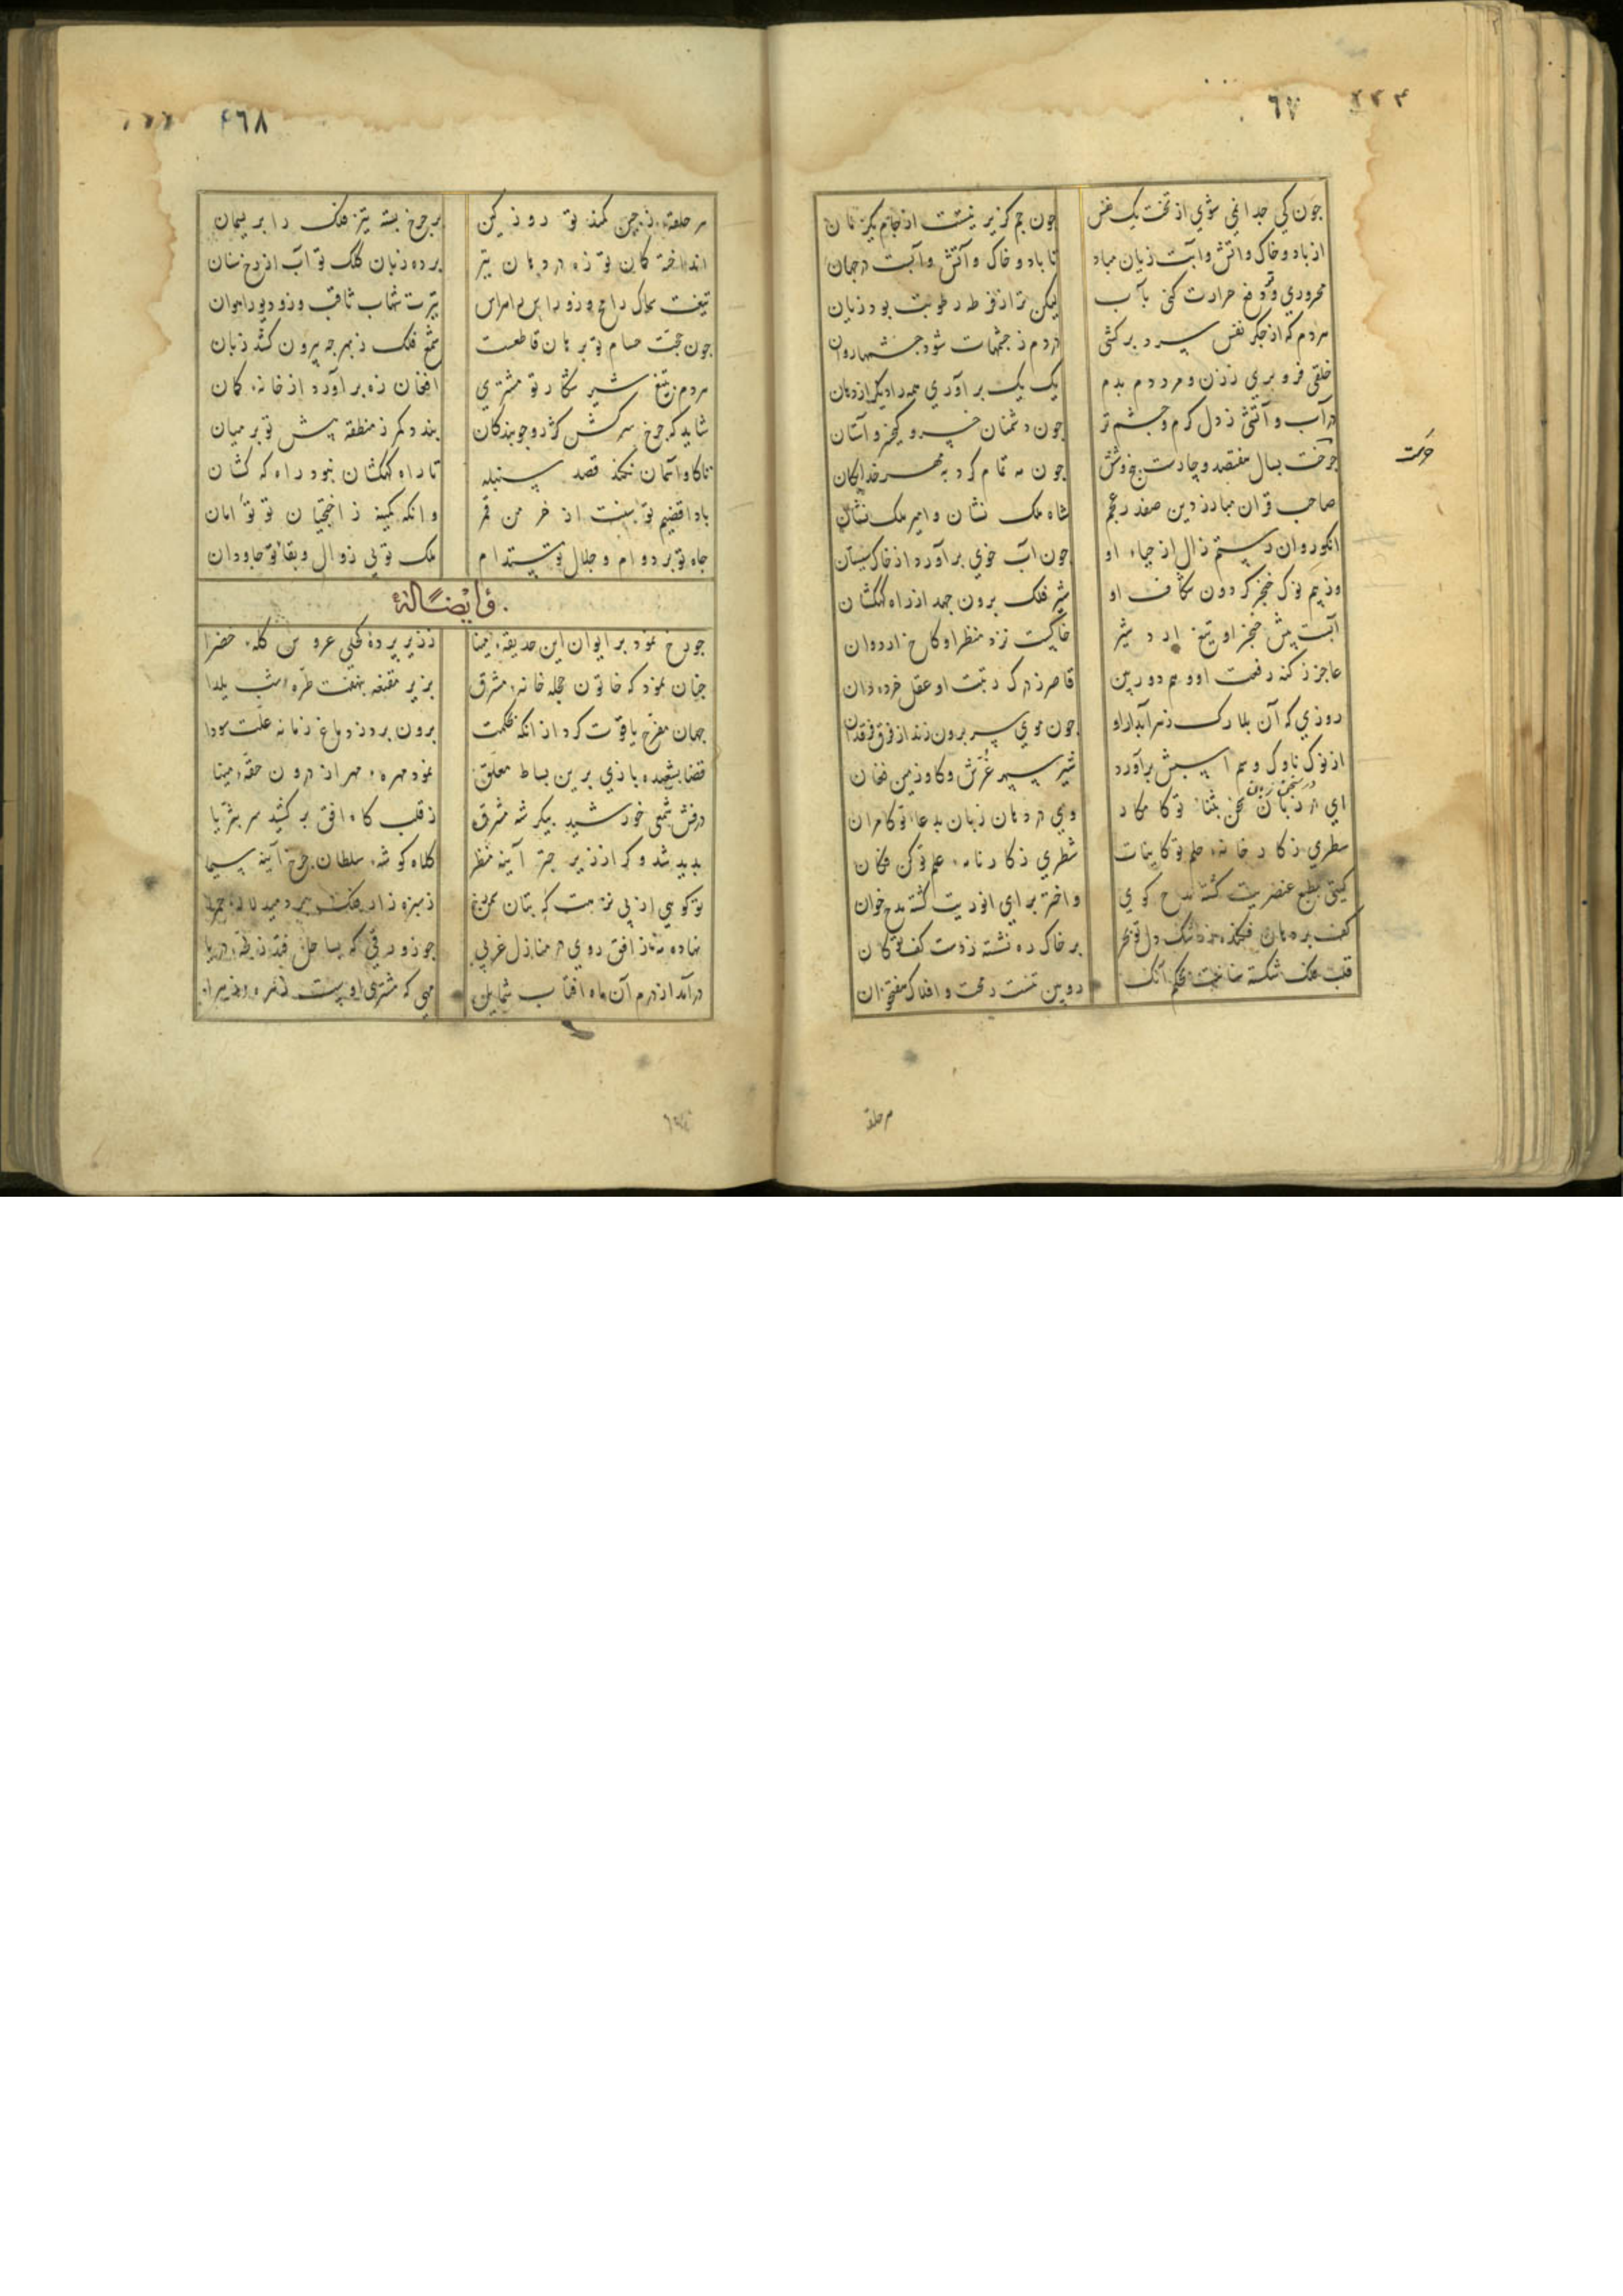 ۶۷
چون کی جدا نمی شوی از تخت یک نفس چون جم گزیر نیست از جام یکزمان
از باد و خاک و اتش و آبت زیان مباد تا باد و خاک و آتش و آبست در جهان
محروری و تو دفع حرارت کنی بآب لیکن ترا ز فرط رطوبت بود زیان
هر دم که از جگر نفس سرد بر کشی در دم ز چشمهات شود چشمها روان
خلقی فرو بری ز زن و مرد دم بدم یک یک بر آوری همه را دیگر از دهان
در آب و آتشی ز دل گرم و چشم تر چون دشمنان خسرو کیخسرو آستان
چرخت بسال هفتصد و چارت چون مه تمام کرد به مهر خدایگان
صاحب قران مبارز دین صفدر عجم شاه ملک نشان و امیر ملک نشان
انکو روان رستم زال از حیاء او چون آب خوی بر آورد از خاک سیستان
وز بیم نوک خنجر گردون شکاف او شیر فلک برون جهد از راه کهکشان
آبست پیش خنجر او تیغ شیر خاکیست نزد منظر او کاخ اردوان
عاجز ز کنه رفعت او وهم دوربین قاصر ز درک رتبت او عقل خرده دان
روزی که آن بلارک زهر آبدار او چون موی سر برون زند از فرق فرقدان
از نوک ناوک و سم اسبش برآورد شیر سپهر غرش و گاو زمین فغان
ای در زبان سخن بثنای تو کامکار وی در دهان زبان بدعاء تو کامران
سطری ز کارخانه حلم تو کاینات شطری ز کارنامه علم تو کن فکان
گیتی بطبع عنصریت گشته مدح گوی و اختر برای انوریت گشته مدح خوان
کف بر دهان فکنده ز رشک دل تو بحر بر خاک ره نشسته ز دست کف تو کان
قلب فلک شکسته روین تنست رمحت و افلاک هفتخوان
هر حلقه
۴۶۸
هر حلقه ز چین کمند تو روز کین بر چرخ بسته تیز فلک را بریسمان
انداخته کمان تو زه در دهان تیر برده زبان کلک تو آب از رخ سنان
تیرت شهاب ثاقب
چون حجت حسام تو برهان قاطعست شمع فلک ز بهر چه بیرون کشد زبان
هر دم ز تیغ شیر شکار تو مشتری افغان زه بر آورد از خانه کمان
شاید که چرخ سرکش کژرو چو بندگان بندد کمر ز منطقه پیش تو بر میان
تا گاو آسمان نکند قصد سنبله تا راه کهکشان نبود راه که کشان
بادا قضیم توسنت از خرمن قمر و انکه کمینه ز اختچیان تو توامان
جاه تو بر دوام و جلال تو مستدام ملک تو بی زوال و بقاء تو جاودان
و ایضاً له
چو رخ نمود بر ایوان این حدیقه مینا ز زیر پرده کحلی عروس کله خضرا
چنان نمود که خاتون حجله خانه مشرق بزیر مقنعه بنهفت طره شب یلدا
جهان مفرح یاقوت کرد از انکه ظلمت برون برد ز دماغ زمانه علت سودا
قضا بشعبده بازی برین بساط معلق نمود مهره مهر از درون حقه مینا
درفش شمعی خورشید پیکر شه مشرق ز قلب گاه افق بر کشید سر بثریا
پدید شد و گر از زیر چتر آینه منظر کلاه گوشه سلطان چرخ آینه سیما
تو گوهی از پی نزهت که بتان ز سبزه زار فلک بر دمید لاله حمرا
نهاده ز افق روی در منازل غربی چو زورقی که بساحل فتد ز لجه دریا
در آمد از درم آن ماه افتاب شمایل مهی که مشتری اوست زهره زهرا